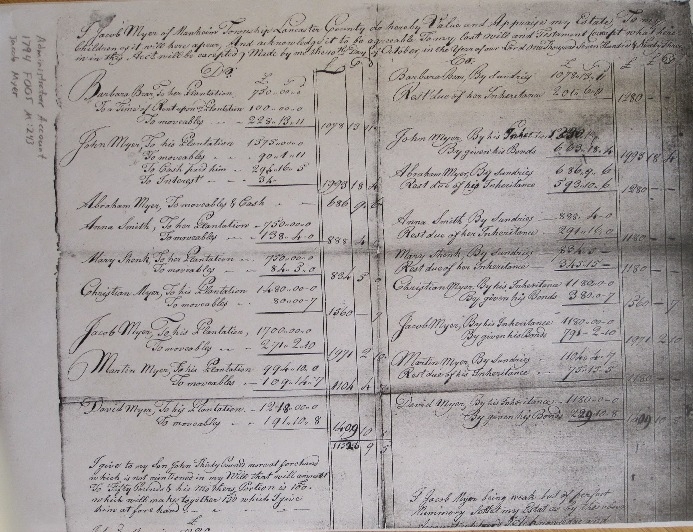 I Jacob Myer of Manheim Township Lancaster County do hereby Value and Appraise my Estate, To my
Children as it will here apear, And acknowledge it to be agreable To my last Will and Testament Except what here
Made by me the 10th Day of October, in the Year of our Lord One thousand Seven Hundred
Administrator Account
1784 FOGI M:243
Jacob Myer
Dr.
Barbara Bear, To her Plantation 750-00-0
To a Time of Rent upon Plantation 100-00-0
To moveables 228-13-11 1078 13 11
John Myer, To his Plantation 1575-00-0
To moveables 90-1-11
To Cash paid him 294-16-5
To Interest 34- 1993 18 4
Abraham Myer, To moveables & Cash 686 9 6
Anna Smith, To her Plantation 750-00-0
To moveables 138-4-0 888 4
Mary Shenk, To her Plantation 750-00-0
To moveables 84-5-0 834 5 0
Christian Myer, To his Plantation 1480-00-0
To moveables 80-00-7 1560 - 7
Jacob Myer, To his Plantation, 1700-00-0
To moveables 271-2-10 1971 2 10
Martin Myer, To his Plantation 994-10-0
To moveables 109-14-7 1104 4
David Myer, To his Plantation 1218-00-0
To moveables 191-10-8 1409 10
9 5
I give to my Son John
which is not mentioned in my Will that will amount
To Fifty Pounds & his Mothers Portion is 100
which will make together 150 which I give
him at forehand
Cr.
Barbara Bear, By Sundries 1078-13-11
Rest due of her Inheritance 201-6-9 1280 -
John Myer, By his
By given his Bonds 18-4 1993 18 4
Abraham Myer, By Sundries 686-9-6
Rest due of his Inheritance 593-10-6 1280 -
Anna Smith, By Sundries 888-4-0
Rest due of her Inheritance 291-16-0 1180 -
Mary Shenk, By Sundries 834-5-0
Rest due of her Inheritance 345-15- 1180 -
Christian Myer, By his Inheritance 1180-00-0
By given his Bonds 380-0-7 1560 - 7
Jacob Myer, By his Inheritance 1180-00-0
By given his Bonds 791-2-10 1971 2 10
Martin Myer, By Sundries 1104-4-7
Rest due of his Inheritance 75-15-5
David Myer, By his Inheritance 1180-0-0
By given his Bonds 229-10-8 1409 10
I Jacob Myer being weak but of perfect
Memmory